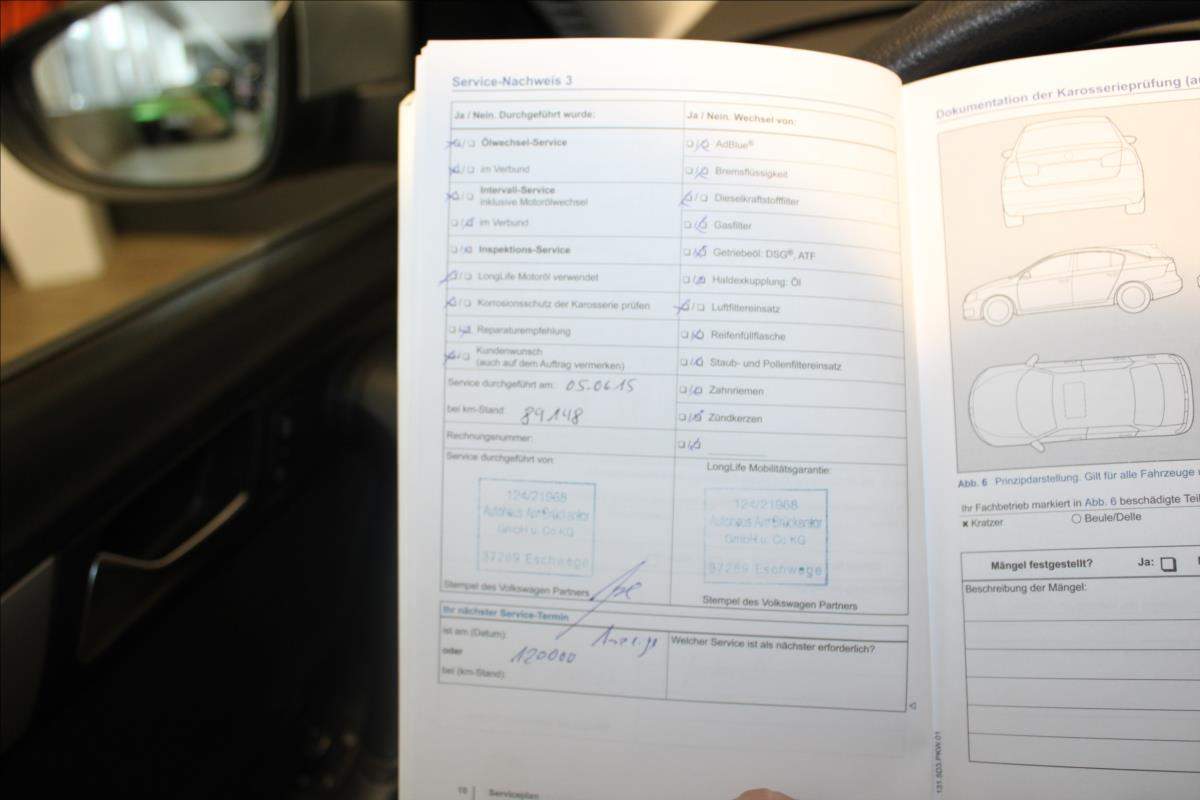 Service-Nachweis 3
Ja / Nein. Durchgeführt wurde:
Ölwechsel-Service
im Verbund
Intervall-Service
inklusive Motorölwechsel
im Verbund
Inspektions-Service
LongLife Motoröl verwendet
Korrosionsschutz der Karosserie prüfen
Reparaturempfehlung
Kundenwunsch
(auch auf dem Auftrag vermerken)
Service durchgeführt am: 05.06.15
bei km-Stand: 89148
Rechnungsnummer:
Service durchgeführt von:
124/21968
Autohaus Am Brückentor
GmbH u. Co KG
37269 Eschwege
Stempel des Volkswagen Partners
Ja / Nein. Wechsel von:
AdBlue®
Bremsflüssigkeit
Dieselkraftstofffilter
Gasfilter
Getriebeöl: DSG®, ATF
Haldexkupplung: Öl
Luftfiltereinsatz
Reifenfüllflasche
Staub- und Pollenfiltereinsatz
Zahnriemen
Zündkerzen
LongLife Mobilitätsgarantie:
124/21968
Autohaus Am Brückentor
GmbH u. Co KG
37269 Eschwege
Stempel des Volkswagen Partners
Ihr nächster Service-Termin
ist am (Datum):
oder
120000
bei (km-Stand):
Welcher Service ist als nächster erforderlich?
Serviceplan
Dokumentation der Karosserieprüfung
Abb. 6 Prinzipdarstellung. Gilt für alle Fahrzeuge
Ihr Fachbetrieb markiert in Abb. 6 beschädigte
x Kratzer
Beule/Delle
Mängel festgestellt?
Ja:
Beschreibung der Mängel:
131.5D3.PKW.01